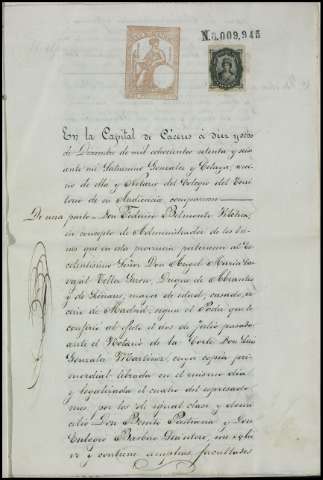 N.5.009,945
En la Capital de Cáceres á diez y seis
de Diciembre de mil ochocientos setenta y seis
ante mí Saturnino Gonzalez y Celaya, veci-
no de ella y Notario del Colegio del Terri-
torio de su Audiencia comparecen
De una parte Don Federico Belmonte Vilches,
en concepto de Administrador de los bie-
nes que en esta provincia pertenecen al Ex-
celentísimo Señor Don Angel Maria Car-
vajal Tellez Giron, Duque de Abrantes
y de Liñares, mayor de edad, casado, ve-
cino de Madrid; segun el Poder que le
confirió al efecto el dos de Julio pasado
ante el Notario de la Corte Don Luis
Gonzalez Martinez; cuya copia pri-
mordial librada en el mismo dia
y legalizada el cuatro del espresado
mes por los de igual clase y domi-
cilio Don Benito Pastrana y Don
Eulogio Barbero Quintero, me exhi-
ve y contiene amplias facultades